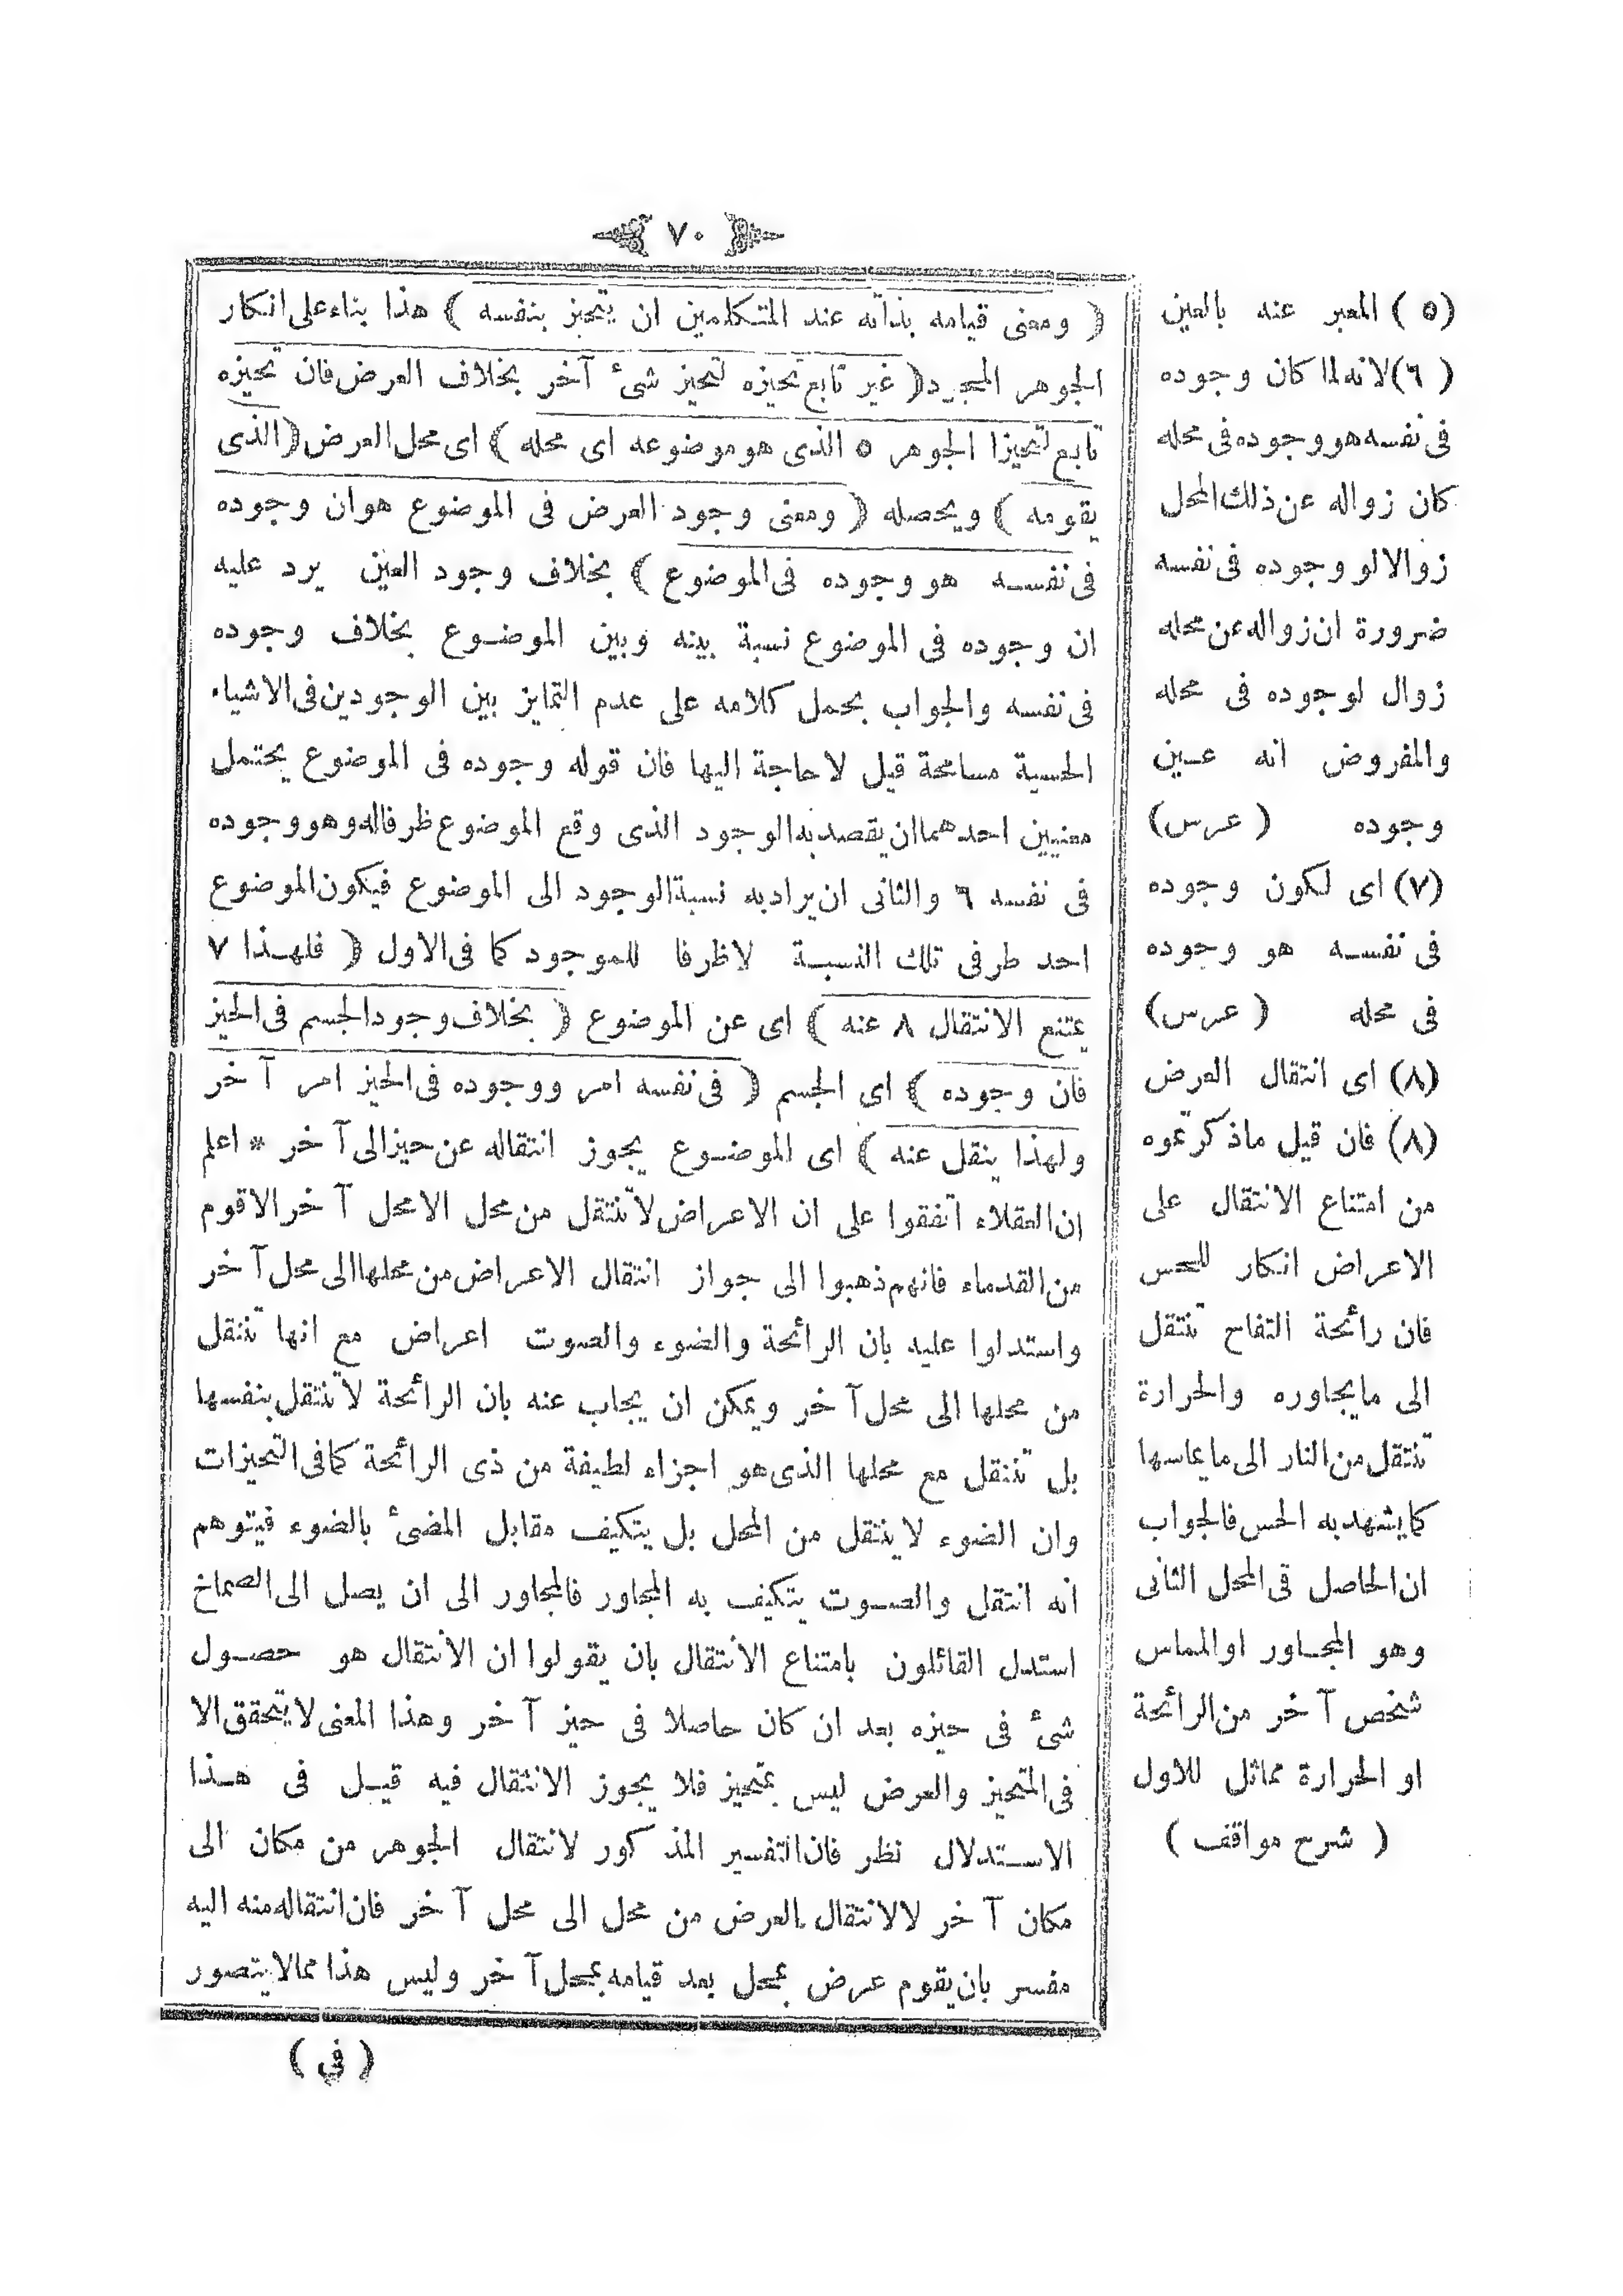 ٧٠
( ومعنى قيامه بذاته عند المتكلمين ان يتحيز بنفسه ) هذا بناء على انكار
الجوهر المجرد ( غير تابع تحيزه لتحيز شئ آخر بخلاف العرض فان تحيزه
تابع لتحيزا الجوهر ٥ الذى هو موضوعه اى محله ) اى محل العرض ( الذى
يقومه ) ويحصله ( ومعنى وجود العرض فى الموضوع هو ان وجوده
فى نفسه هو وجوده فى الموضوع ) بخلاف وجود العين يرد عليه
ان وجوده فى الموضوع نسبة بينه وبين الموضوع بخلاف وجوده
فى نفسه والجواب بحمل كلامه على عدم التمايز بين الوجودين فى الاشياء
الحسية مسامحة قيل لا حاجة اليها فان قوله وجوده فى الموضوع يحتمل
معنيين احدهما ان يقصد به الوجود الذى وقع الموضوع ظرفا له وهو وجوده
فى نفسه ٦ والثانى ان يراد به نسبة الوجود الى الموضوع فيكون الموضوع
احد طرفى تلك النسبة لا ظرفا للموجود كما فى الاول ( فلهذا ٧
يمتنع الانتقال ٨ عنه ) اى عن الموضوع ( بخلاف وجود الجسم فى الحيز
فان وجوده ) اى الجسم ( فى نفسه امر ووجوده فى الحيز امر آخر
ولهذا ينقل عنه ) اى الموضوع يجوز انتقاله عن حيز الى آخر * اعلم
ان العقلاء اتفقوا على ان الاعراض لا تنتقل من محل الا محل آخر الا قوم
من القدماء فانهم ذهبوا الى جواز انتقال الاعراض من محلها الى محل آخر
واستدلوا عليه بان الرائحة والضوء والصوت اعراض مع انها تنتقل
من محلها الى محل آخر ويمكن ان يجاب عنه بان الرائحة لا تنتقل بنفسها
بل تنتقل مع محلها الذى هو اجزاء لطيفة من ذى الرائحة كما فى التحيزات
وان الضوء لا ينتقل من المحل بل يتكيف مقابل المضئ بالضوء فيتوهم
انه انتقل والصوت يتكيف به المجاور فالمجاور الى ان يصل الى الصماخ
استدل القائلون بامتناع الانتقال بان يقولوا ان الانتقال هو حصول
شئ فى حيزه بعد ان كان حاصلا فى حيز آخر وهذا المعنى لا يتحقق الا
فى المتحيز والعرض ليس بمتحيز فلا يجوز الانتقال فيه قيل فى هذا
الاستدلال نظر فان التفسير المذكور لانتقال الجوهر من مكان الى
مكان آخر لا لانتقال العرض من محل الى محل آخر فان انتقاله منه اليه
مفسر بان يقوم عرض بمحل بعد قيامه بمحل آخر وليس هذا مما لا يتصور
( فى )
(٥) المعبر عنه بالعين
(٦) لانه لما كان وجوده
فى نفسه هو وجوده فى محله
كان زواله عن ذلك المحل
زوالا لو وجوده فى نفسه
ضرورة ان زواله عن محله
زوال لوجوده فى محله
والمفروض انه عين
وجوده ( عرس )
(٧) اى لكون وجوده
فى نفسه هو وجوده
فى محله ( عرس )
(٨) اى انتقال العرض
(٨) فان قيل ما ذكرتموه
من امتناع الانتقال على
الاعراض انكار للحس
فان رائحة التفاح تنتقل
الى ما يجاوره والحرارة
تنتقل من النار الى ما يماسها
كما يشهد به الحس فالجواب
ان الحاصل فى المحل الثانى
وهو المجاور او المماس
شخص آخر من الرائحة
او الحرارة مماثل للاول
( شرح مواقف )